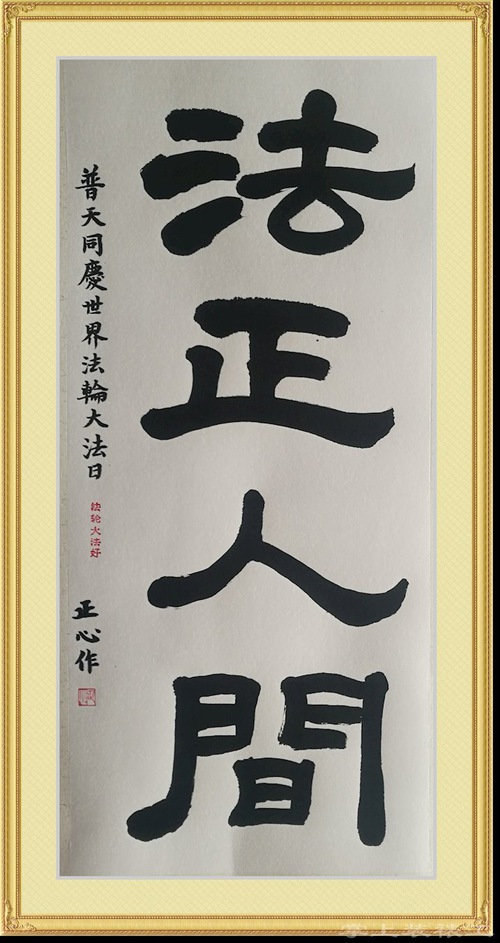 法正人間
普天同慶世界法輪大法日
法轮大法好
正心作